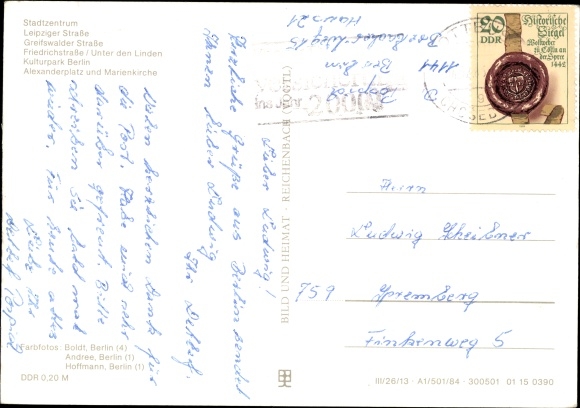 Stadtzentrum
Leipziger Straße
Greifswalder Straße
Friedrichstraße / Unter den Linden
Kulturpark Berlin
Alexanderplatz und Marienkirche
Lieber Ludwig!
Herzliche Grüße aus Berlin sendet
Ihnen lieber Ludwig
Ihr Detlef.
Vielen herzlichen Dank für
die Post. Habe mich sehr
darüber gefreut. Bitte
schreiben Sie bald mal
wieder. Für heute alles
Liebe Ihr
Detlef
Farbfotos: Boldt, Berlin (4)
Andree, Berlin (1)
Hoffmann, Berlin (1)
DDR 0,20 M
BILD UND HEIMAT · REICHENBACH (VOGTL)
1141
Berlin
Haus 21
ins Jahr 2000
20
DDR
Historische
Siegel
Wollweber
zu Cölln an
der Spree
1442
Herrn
Ludwig
759 Spremberg
Finkenweg 5
III/26/13 · A1/501/84 · 300501 01 15 0390